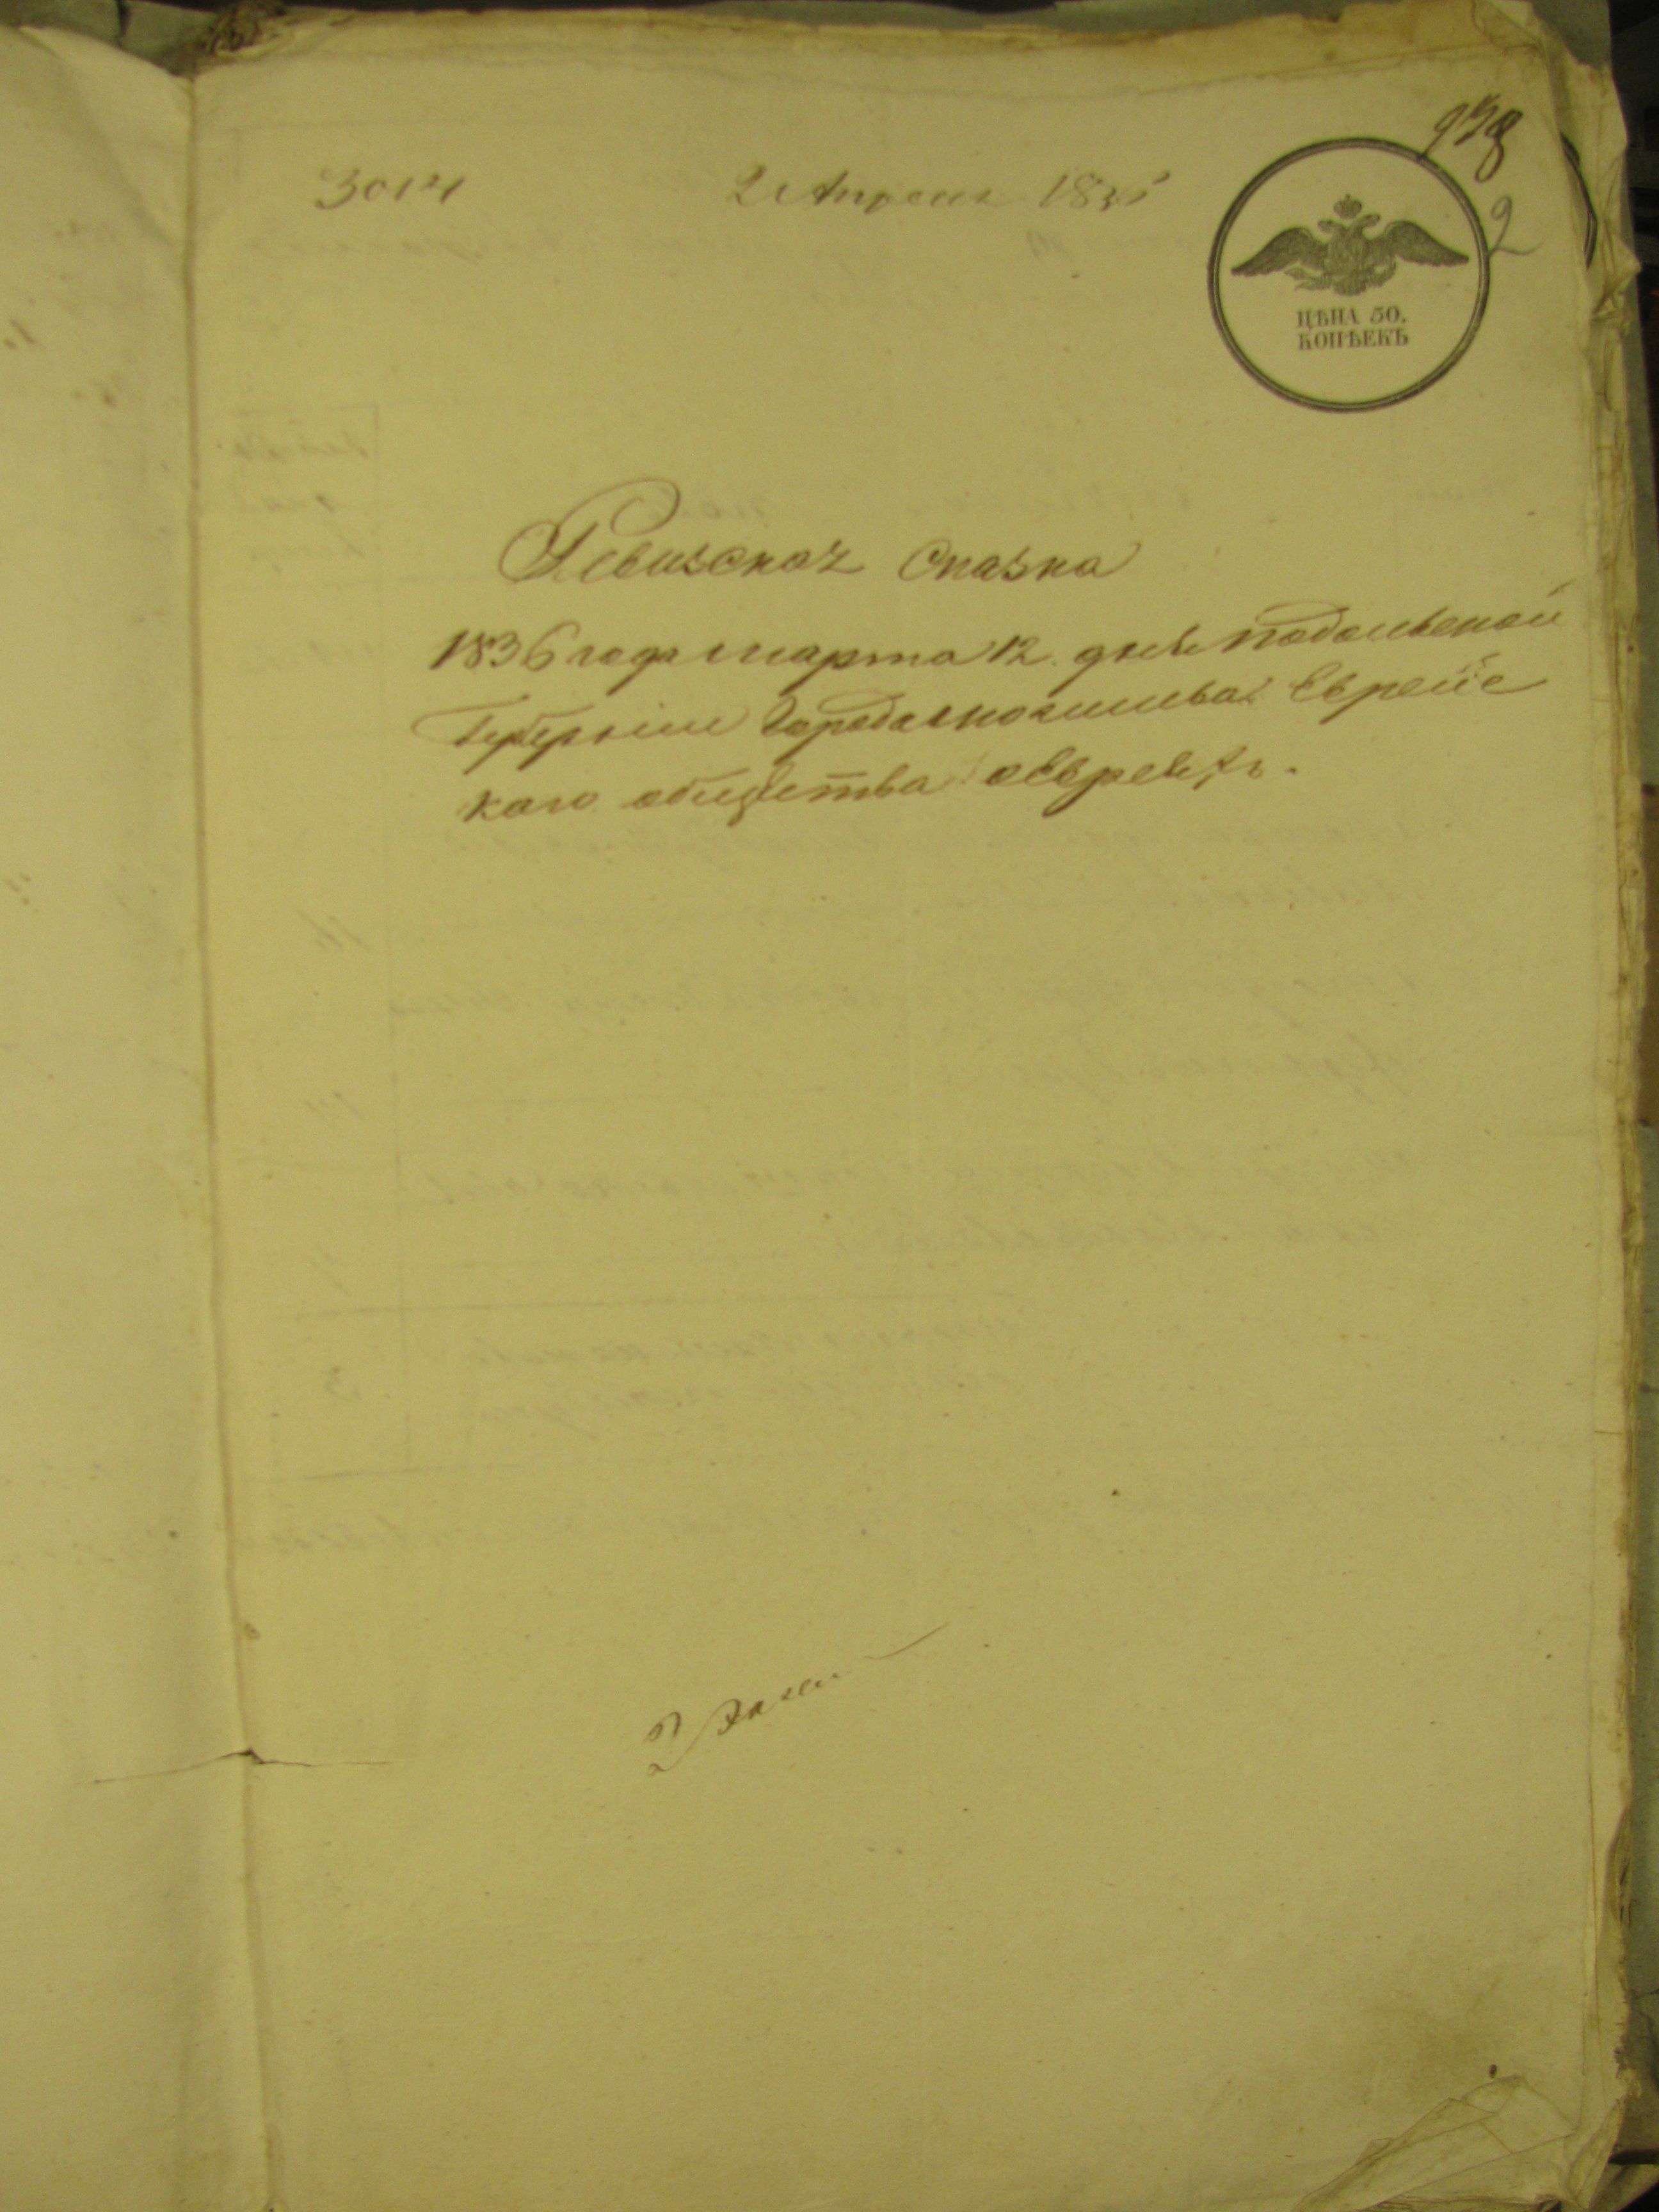 938
3014 2 Апреля 1836
2
ЦѢНА 50.
КОПѢЕКЪ
Ревизская Сказка
1836 года марта 12 дня Подольской
Губернiи Города Могилева Еврейс
каго общества оЕвреяхъ.